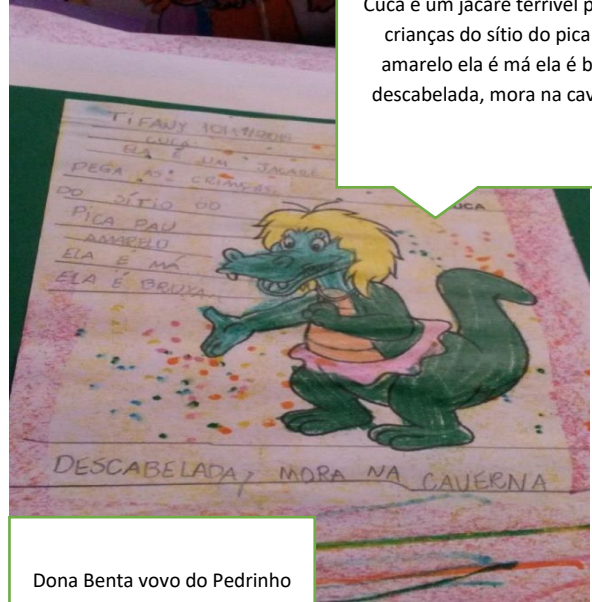 Cuca é um jacaré terrível p
crianças do sítio do pica
amarelo ela é má ela é b
descabelada, mora na cav
TIFANY 10/11/20
CUCA
ELA É UM JACARÉ
PEGA AS CRIANÇAS
DO SÍTIO DO
PICA PAU
AMARELO
ELA É MÁ
ELA É BRUXA
UCA
DESCABELADA, MORA NA CAVERNA
Dona Benta vovo do Pedrinho